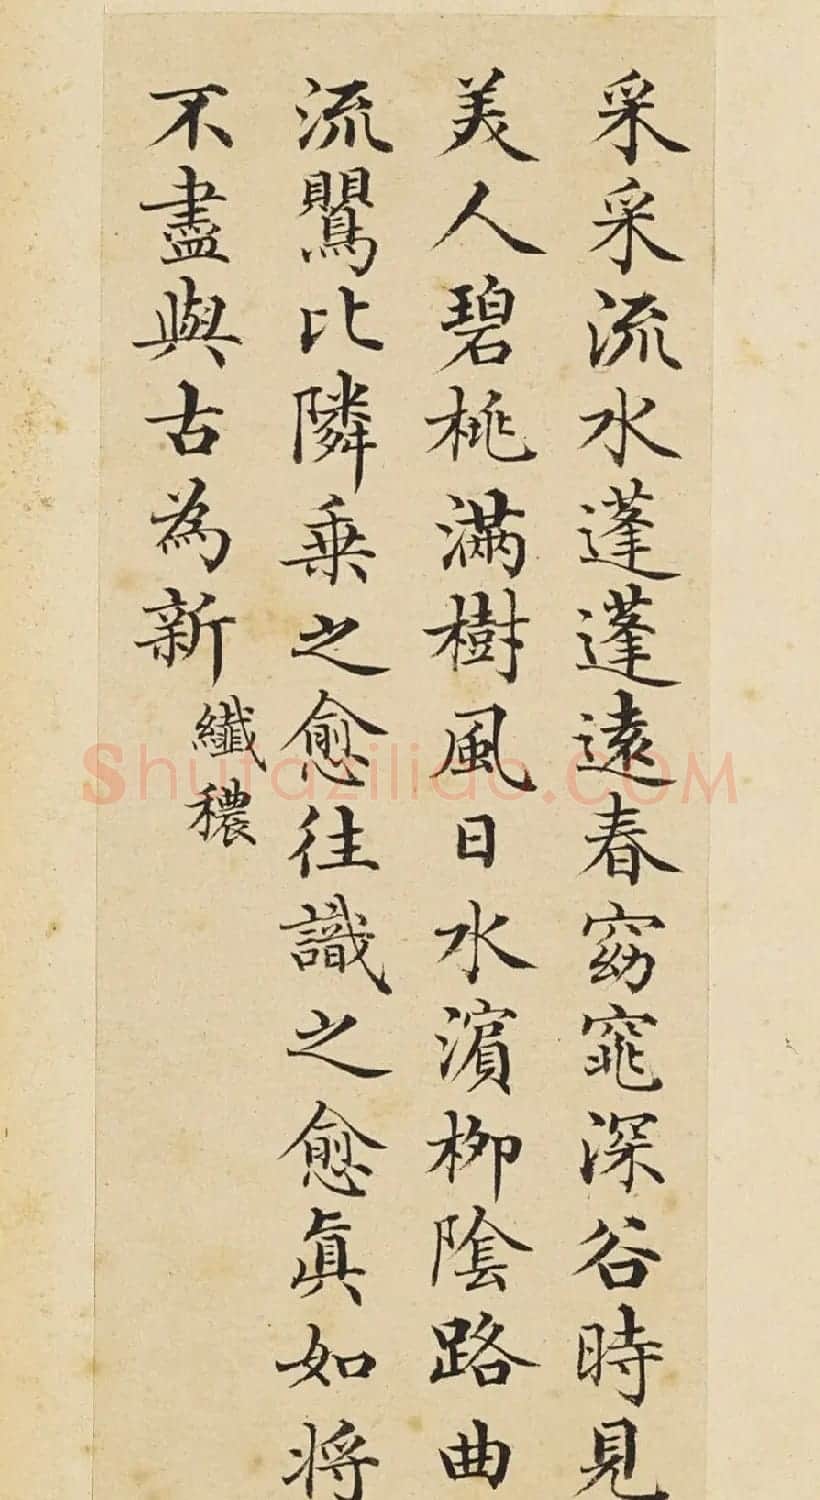 采采流水蓬蓬遠春窈窕深谷時見
美人碧桃滿樹風日水濵柳陰路曲
流鸎比隣乗之愈往識之愈眞如將
不盡與古為新
纖穠
Shufaziliao.COM